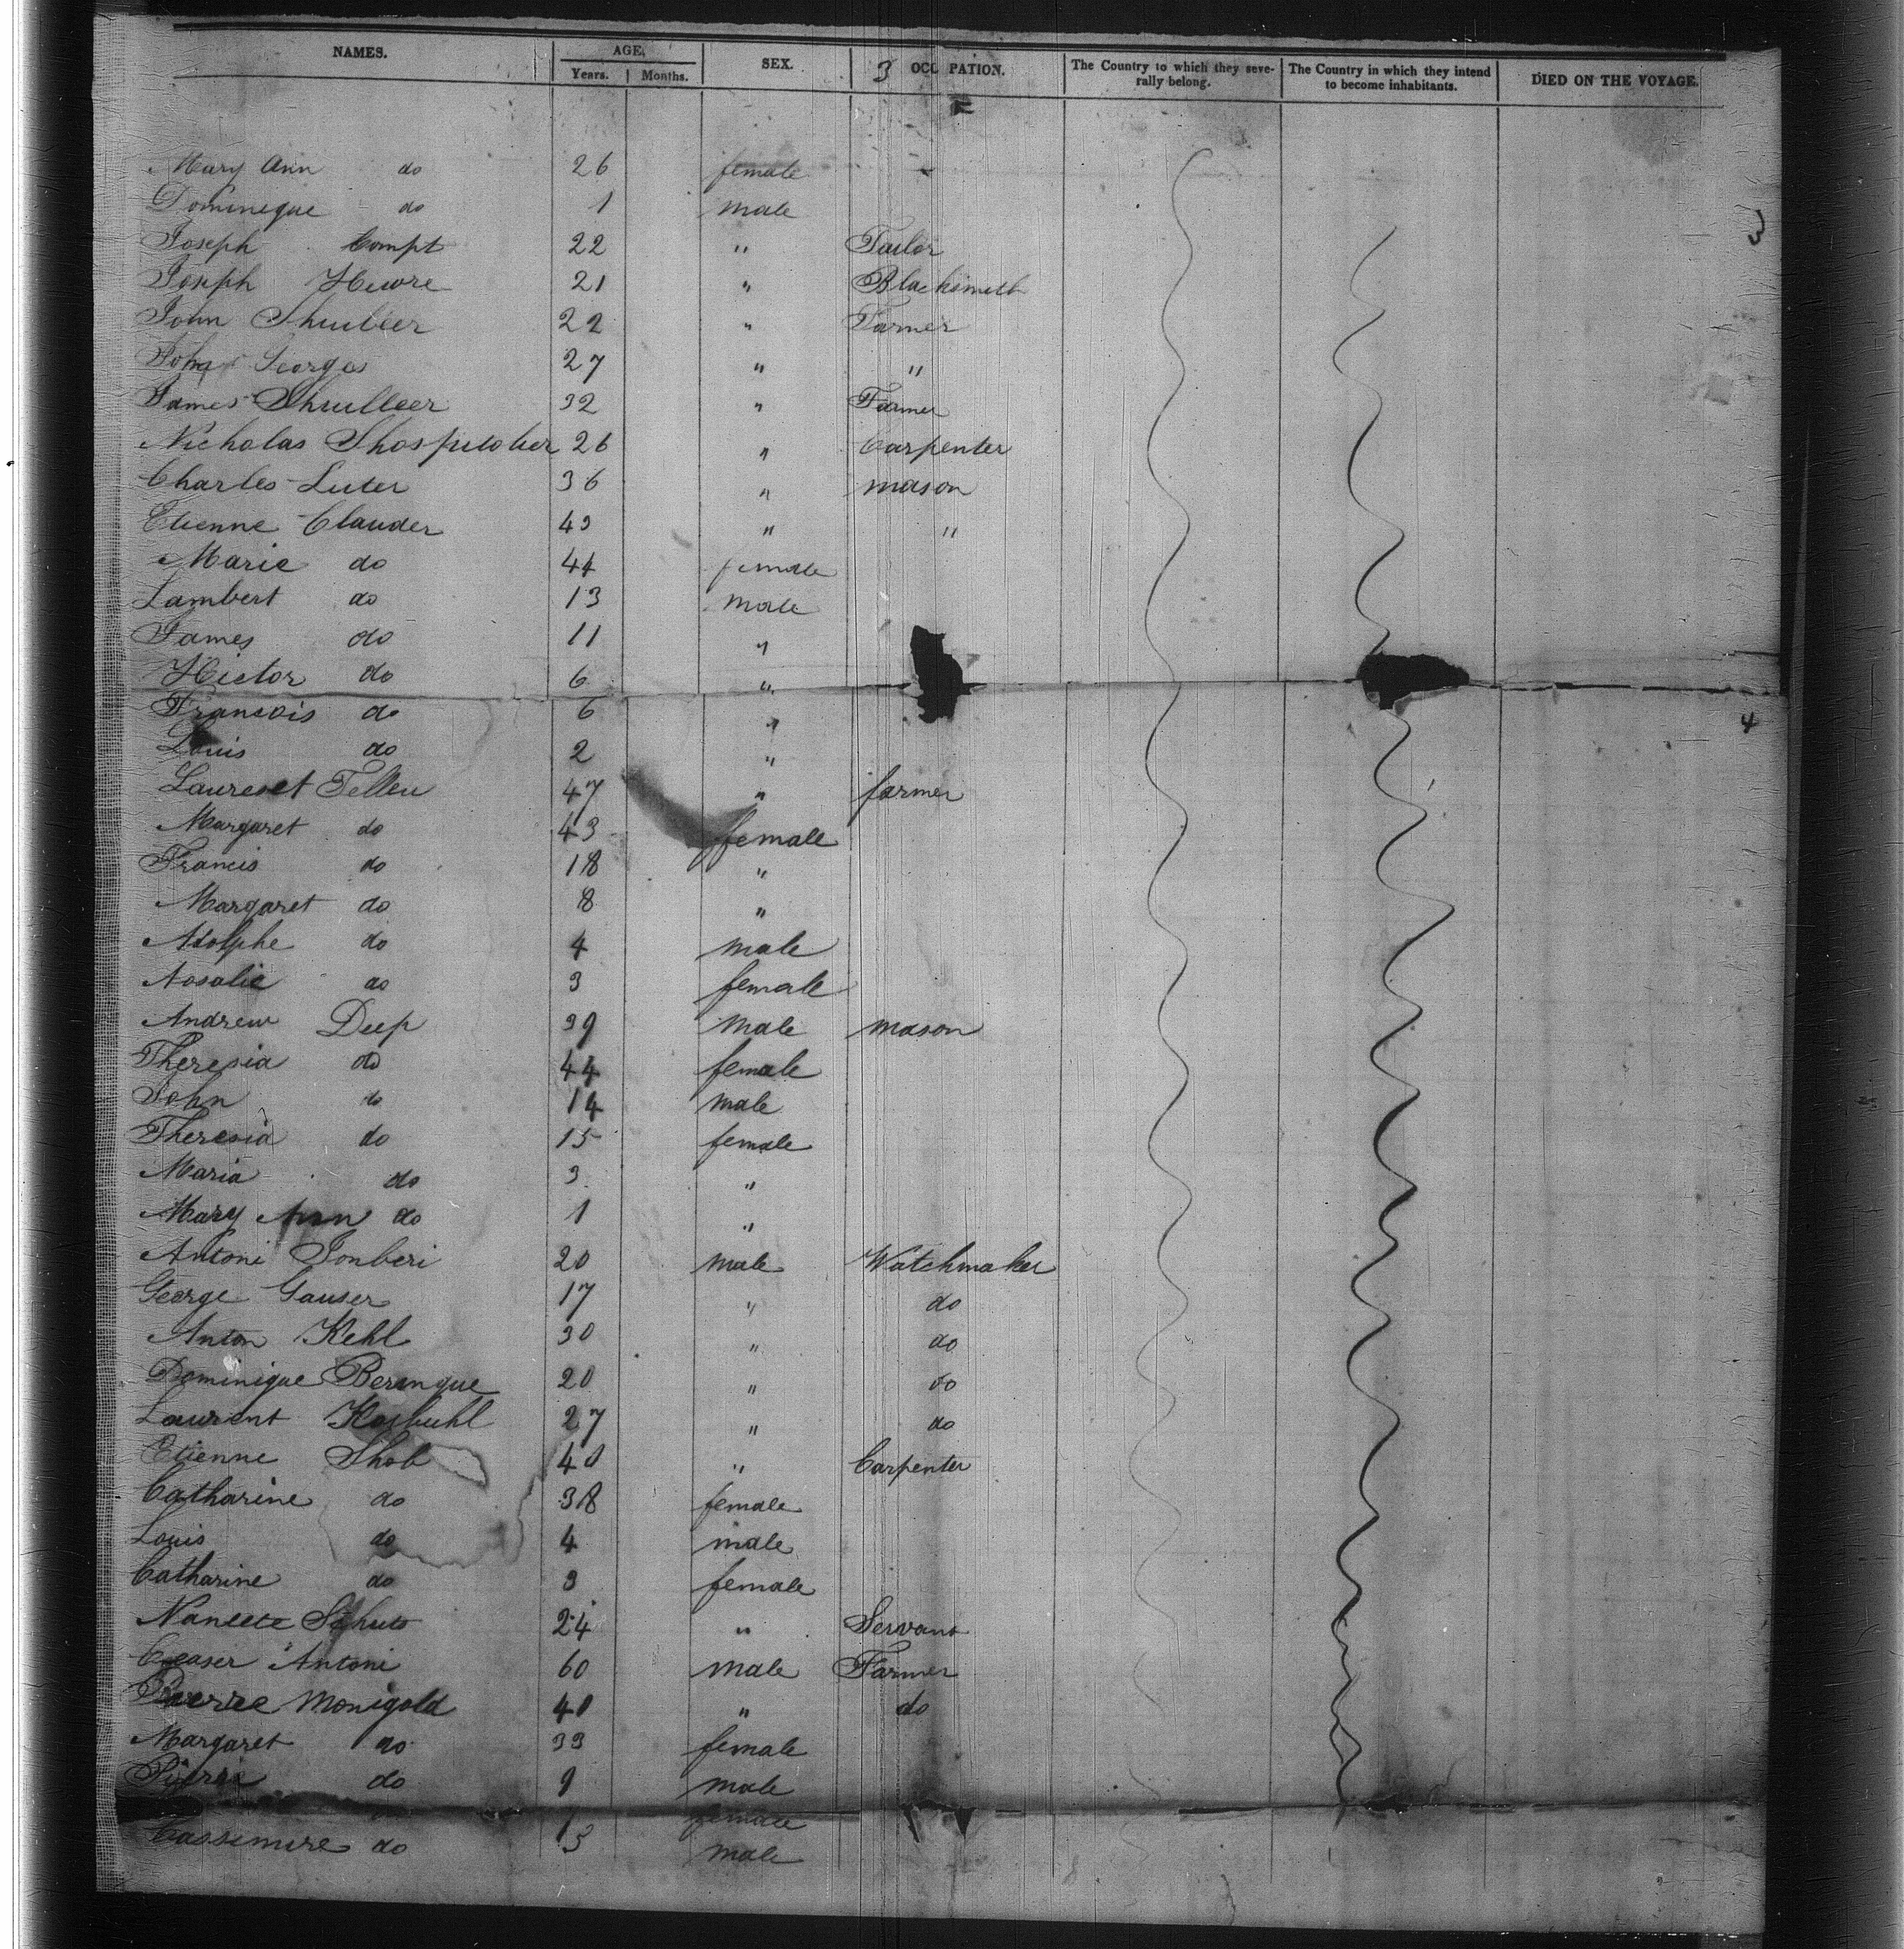 NAMES. AGE, Years. Months. SEX. 3 OCC PATION. The Country to which they severally belong. The Country in which they intend to become inhabitants. DIED ON THE VOYAGE.
Mary Ann do 26 female
Domineque do 1 male
3
Joseph Compt 22 " Tailor
Joseph Hewre 21 " Blacksmith
John Shuileer 22 " Farmer
John Georges 27 " "
James Shuilleer 32 " Farmer
Nicholas 26 " Carpenter
Charles Luter 36 " mason
Etienne Clauder 43 " "
Marie do 44 female
Lambert do 13 male
James do 11 "
Hictor do 6 "
Francois do 6 "
4
Louis do 2 "
Telleu 47 " farmer
Margaret do 43 female
Francis do 18 "
Margaret do 8 "
Adolphe do 4 male
Rosalie do 3 female
Andrew Deep 39 male mason
Theresia do 44 female
John do 14 male
Theresia do 15 female
Maria do 3 "
Mary Ann do 1 "
Antoni Jonberi 20 male Watchmaker
George Gauser 17 " do
Anton Kehl 30 " do
Dominique Berenque 20 " do
Laurent 27 " do
Etienne Shob 40 " Carpenter
Catharine do 38 female
Louis do 4 male
Catharine do 3 female
Nanette Schuts 24 " Servant
Ceaser Antoni 60 male Farmer
Pierre Monigold 40 " do
Margaret do 33 female
Pierre do 9 male
female
Cassimire do 5 male